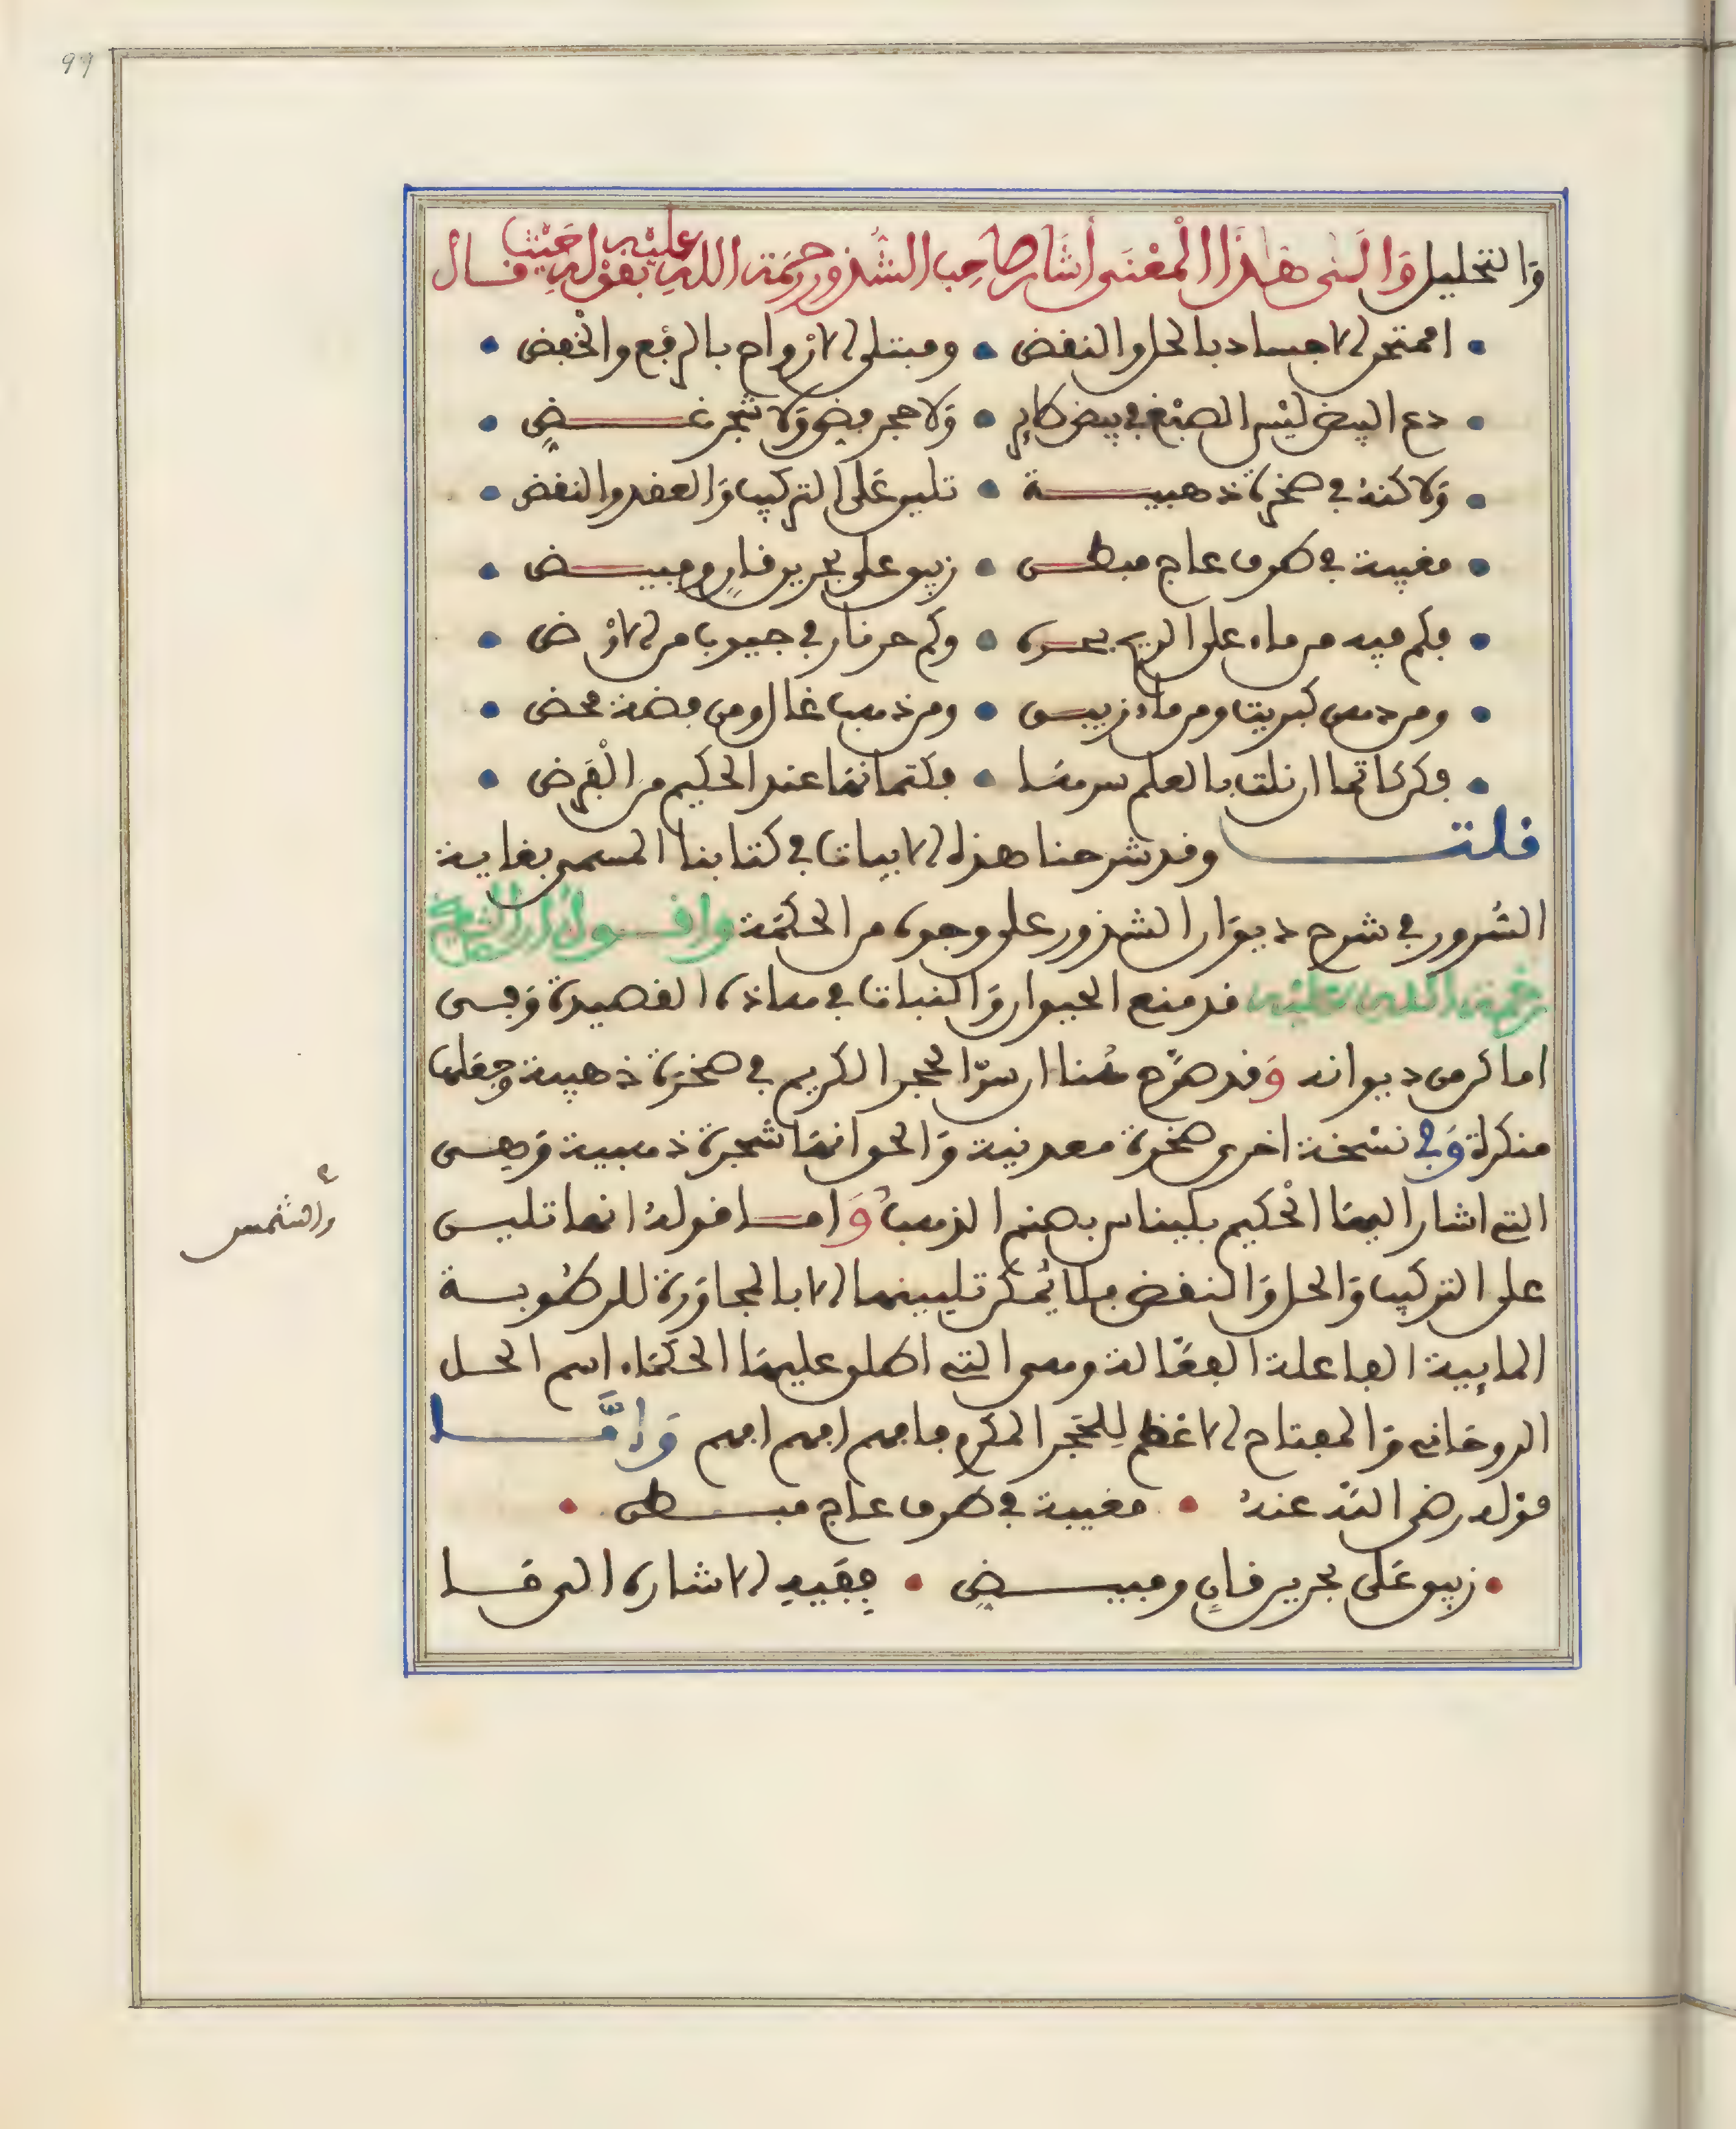 والتحليل وَإلَى هَذَا الْمَعْنَى أشَار صَاحِب الشُّذور رحمَة اللهِ عليْهِ بقوْلِهِ حَيْث قال
اممتحن الاجساد بالحل والنفض • ومبتلى الارْواح بالرفع والخْفض
دع البيض ليْس الصبْغ في بيض طاير • وَلا حجر فيض وَلا شجر غض
وَلاكنهُ في صخرة ذهبية • تلين عَلى التركيب وَالعقد والنقض
مغيبة في طرف عاج مبطن • زبيق على بحرين قانٍ ومبيض
فكم فيه من ماء على الريح بحره • وكم من نار في جيوب من الارْض
ومن دهن كبريت ومن ماء زيبق • ومن ذهب غال ومن فضة محض
فكن كاتما ان نلت بالعلم سرهَا • فكتمانهَا عند الحكيم من الْفَرض
قلت وقد شرحنا هذه الابيات في كتابنا المسمى بغاية
السُّرور في شرح ديوَان الشذور على وجوه من الحكمَة وَاقول ان الشيخ
رحمة الله عليه قد منع الحيوان وَالنبات في هاذه القصيدة وَفي
اماكن من ديوانه وَقد صَرَّح هُنا ان سرّ الحجر الكريم في صخرة ذهبية وجعلها
منكرة وَفي نسْخة اخرى صخرة معدنية وَالحق انهَا شجرة ذهبية وَهي
التي اشار اليهَا الْحكيم بليناس بصنم الذهب وَامَّا قولهُ انها تلين
على التركيب وَالحل وَالنقض فلا يُمكن تليينها الا بالمجاوَرة للرطُوبة
المايية الفاعلة الفعَّالة وهي التي اطلق عليهَا الحكمَاء اسم الحل
الروحَاني وَالمفتاح الاعْظم لِلحَجَر المكرم فافهم افهم افهم وَامَّا
قوله رضي اللّه عنهُ • مغيبة في طرف عاج مبطن •
• زبيق عَلى بحرين قانٍ ومبيضٍ • فِفيهِ الاشارة الى مَا
وَالشمس
99